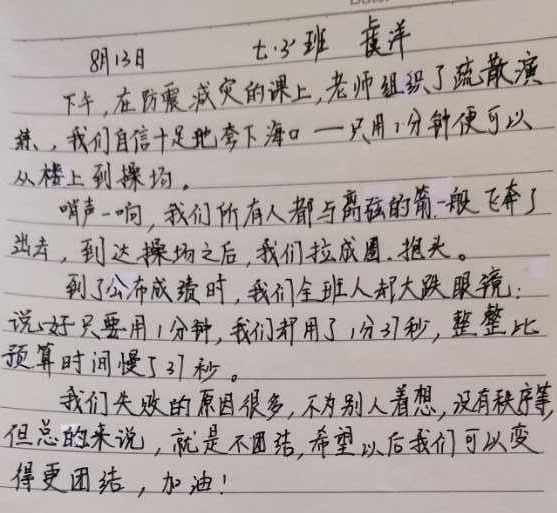 8月13日 七.3班 虞洋
下午,在防震减灾的课上,老师组织了疏散演
练,我们自信十足地夸下海口一只用1分钟便可以
从楼上到操场。
哨声一响,我们所有人都与离弦的箭一般飞奔了
出去,到达操场之后,我们拉成圈.抱头。
到了公布成绩时,我们全班人都大跌眼镜:
说好只要用1分钟,我们却用了1分37秒,整整比
预算时间慢了37秒。
我们失败的原因很多,不为别人着想,没有秩序等,
但总的来说,就是不团结,希望以后我们可以变
得更团结,加油!